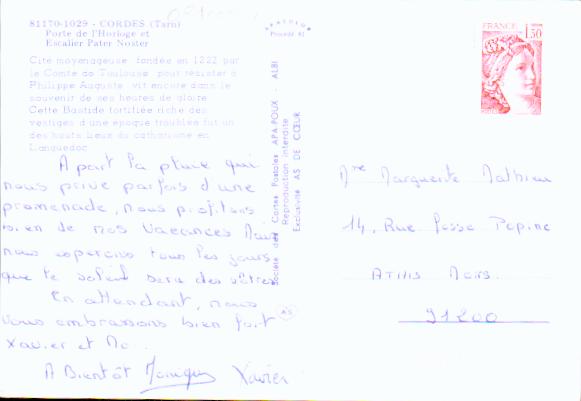 81170-1029 - CORDES (Tarn)
Porte de l'Horloge et
Escalier Pater Noster
Cité moyenageuse fondée en 1222 par
le Comte de Toulouse pour résister à
Philippe Auguste vit encore dans le
souvenir de ses heures de gloire
Cette Bastide fortifiée riche des
vestiges d'une époque troublée fut un
des hauts lieux du catharisme en
Languedoc
A part la pluie qui
nous prive parfois d'une
promenade, nous profitons
bien de nos vacances Mais
nous esperons tous les jours
que le soleil sera des nôtres
En attendant, nous
vous embrassons bien fort
Xavier et
A Bientôt Xavier
APA-COLOR
Procédé
Société des Cartes Postales APA-POUX - ALBI
Reproduction interdite
Exclusivité AS DE CŒUR
AS
FRANCE
1,30
Mme Marguerite Mathieu
14, Rue Fosse Pepine
ATHIS MONS
91200